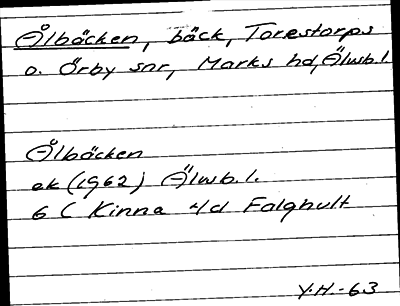 Ålbäcken, bäck, Torestorps
o. Örby snr, Marks hd, Älvsb. l.
Ålbäcken
ek (1962) Älvsb. l.
6 C Kinna
Y.H.-63